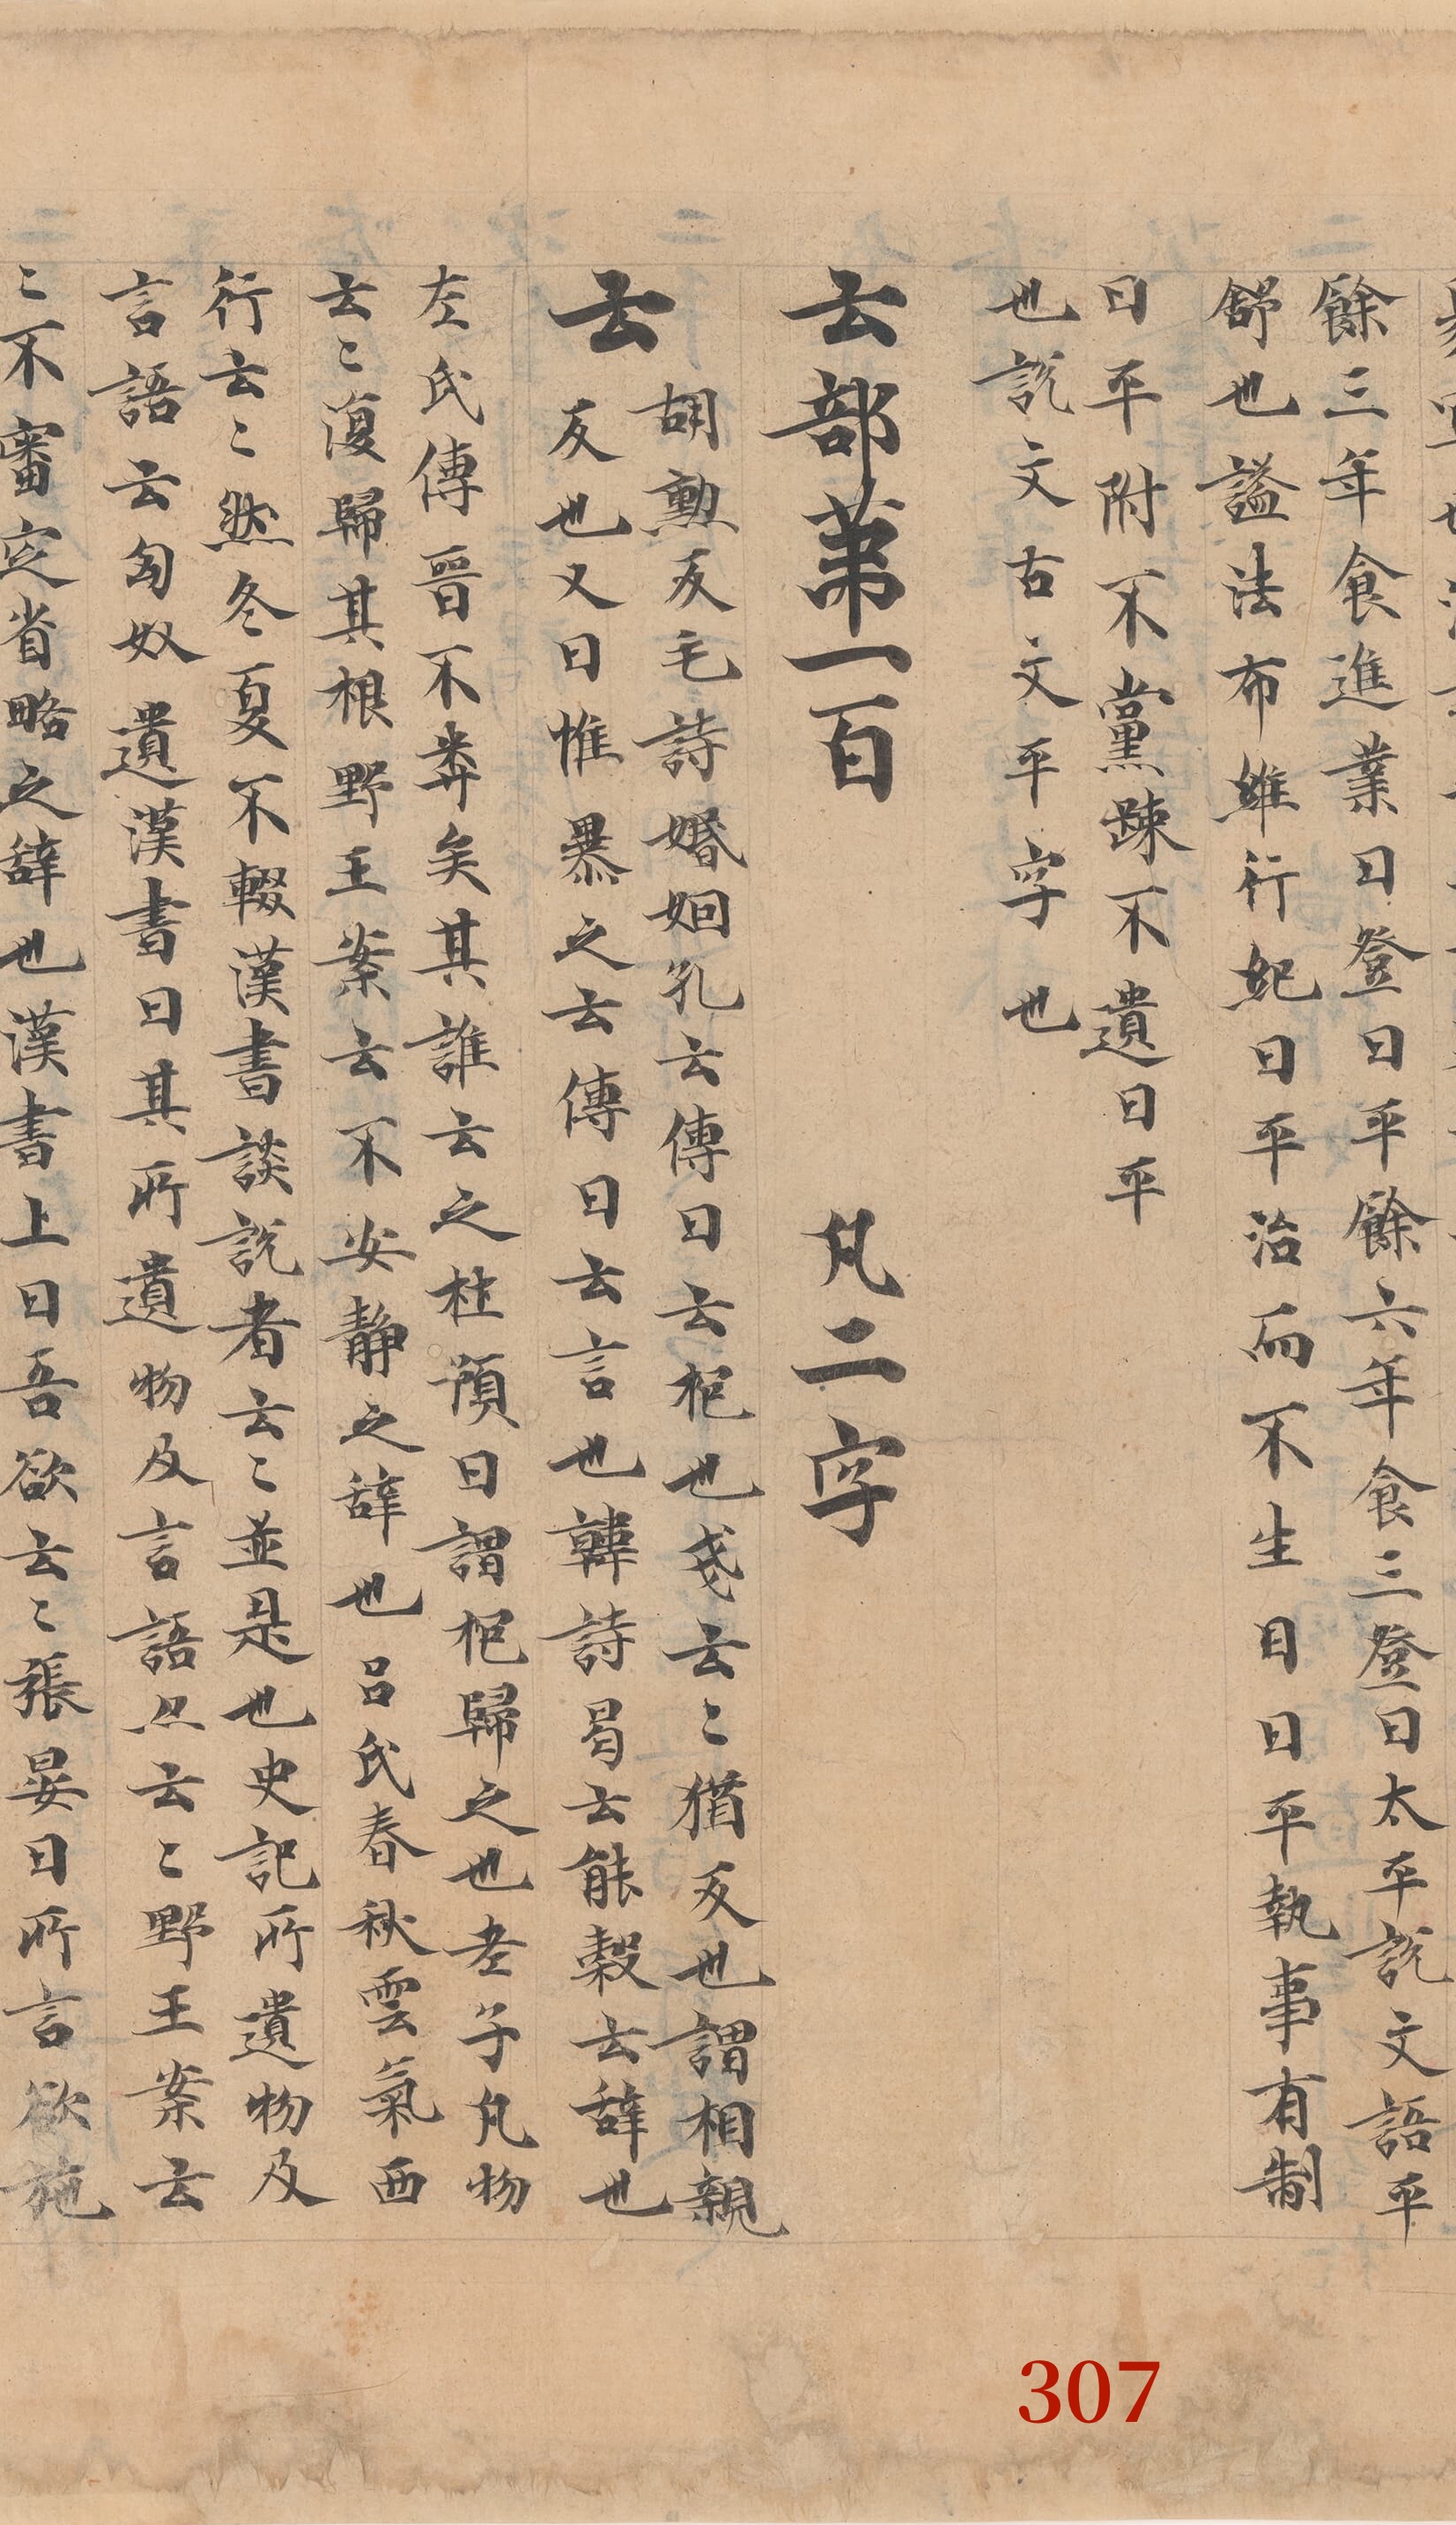 餘三年食進業曰登曰平餘六年食三登曰太平說文語平
舒也謚法布維行妃曰平治而不生目曰平執事有制
曰平附不黨踈不遺曰平
也說文古文平字也
云部第一百 凡二字
云 胡勲反毛詩婚姻孔云傳曰云柁也戔云〻猶友也謂相親
友也又曰惟暴之云傳曰云言也韓詩曷云能榖云辞也
左氏傳晉不粦矣其誰云之杜預曰謂柁歸之也老子凡物
云〻復歸其根野王案云不安靜之辞也呂氏春秋雲氣西
行云〻然冬夏不輟漢書談說者云〻並是也史記所遺物及
言語云匈奴遺漢書曰其所遺物及言語然云〻野王案云
〻不審定省略之辞也漢書上曰吾欲云〻張晏曰所言欲施
307